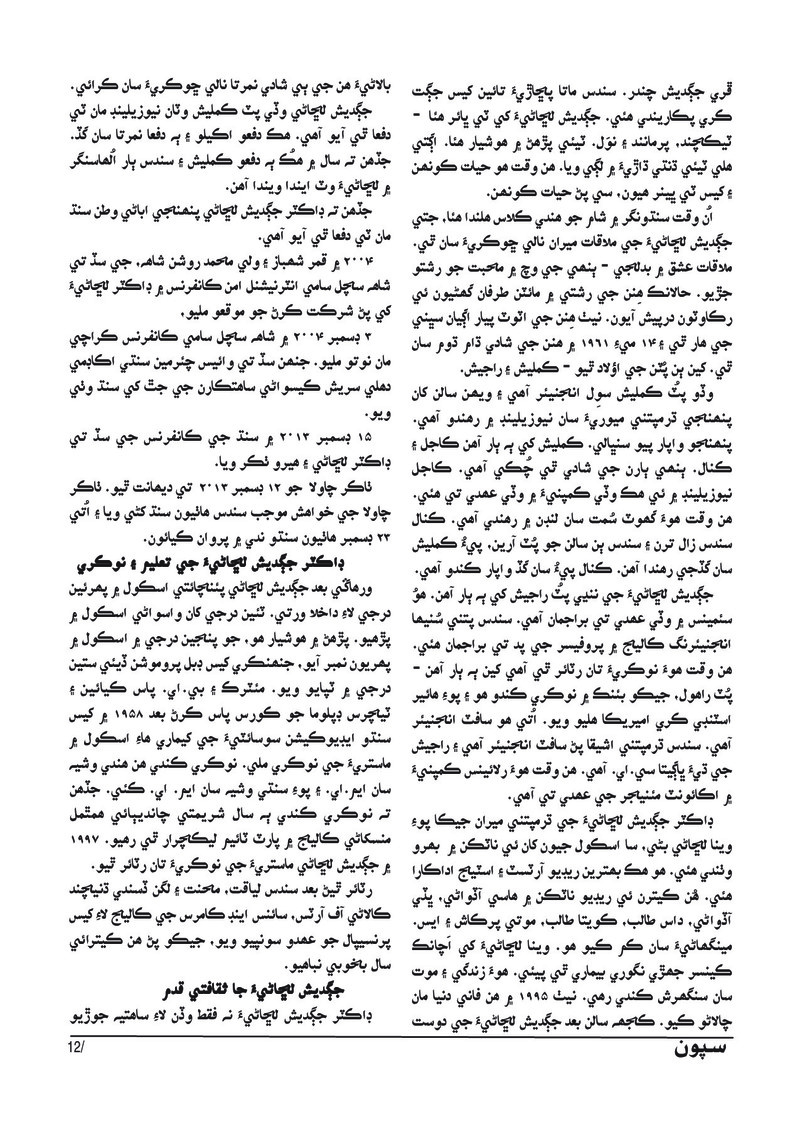 ڦري جڳديش چندر. سندس ماتا پاڇاڙيءَ تائين کيس جڳت
ڪري پڪاريندي هئي. جڳديش لڇاڻيءَ کي ٽي ڀائر هئا -
ٽيڪچند، پرمانند ۽ نوَل. ٽيئي پڙهڻ ۾ هوشيار هئا. اڳتي
هلي ٽيئي ڌنڌي ڌاڙيءَ ۾ لڳي ويا. هن وقت هو حيات ڪونهن
۽ کيس ٽي ڀينر هيون، سي پڻ حيات ڪونهن.
اُن وقت سنڌونگر ۾ شام جو هندي ڪلاس هلندا هئا، جتي
جڳديش لڇاڻيءَ جي ملاقات ميران نالي ڇوڪريءَ سان ٿي.
ملاقات عشق ۾ بدلجي - ٻنهي جي وچ ۾ محبت جو رشتو
جڙيو. حالانڪ هِنن جي رشتي ۾ مائٽن طرفان گهڻيون ئي
رڪاوٽون درپيش آيون. نيٺ هِنن جي اٽوٽ پيار اڳيان سڀني
جي هار ٿي ۽ ۱۴ مئي ۱۹۶۱ ۾ هنن جي شادي ڌام ڌوم سان
ٿي. کين ٻن پُٽن جي اؤلاد ٿيو - ڪمليش ۽ راجيش.
وڏو پٽُ ڪمليش سوِل انجنيئر آهي ۽ ويهن سالن کان
پنهنجي ڌرمپتني ميوريءَ سان نيوزيلينڊ ۾ رهندو آهي.
پنهنجو واپار پيو سنڀالي. ڪمليش کي ٻه ٻار آهن ڪاجل ۽
ڪنال. ٻنهي ٻارن جي شادي ٿي چُڪي آهي. ڪاجل
نيوزيلينڊ ۾ ئي هڪ وڏي ڪمپنيءَ ۾ وڏي عهدي تي هئي.
هن وقت هوءَ گهوٽ سُمت سان لنڊن ۾ رهندي آهي. ڪنال
سندس زال ترن ۽ سندس ٻن سالن جو پُٽ آرين، پيءُ ڪمليش
سان گڏجي رهندا آهن. ڪنال پيءُ سان گڏ واپار ڪندو آهي.
جڳديش لڇاڻيءَ جي ننڍي پٽُ راجيش کي ٻه ٻار آهن. هوُ
سئمينس ۾ وڏي عهدي تي براجمان آهي. سندس پتني سُنيها
انجنيئرنگ ڪاليج ۾ پروفيسر جي پد تي براجمان هئي.
هن وقت هوءَ نوڪريءَ تان رٽائر ٿي آهي کين ٻه ٻار آهن -
پُٽ راهول، جيڪو بئنڪ ۾ نوڪري ڪندو هو ۽ پوءِ هائير
اسٽڊي ڪري اميريڪا هليو ويو. اُتي هو سافٽ انجنيئر
آهي. سندس ڌرمپتني اشيقا پڻ سافٽ انجنيئر آهي ۽ راجيش
جي ڌيءَ ياڳيتا سي.اي. آهي. هن وقت هوءَ رلائينس ڪمپنيءَ
۾ اڪائونٽ مئنيجر جي عهدي تي آهي.
ڊاڪٽر جڳديش لڇاڻيءَ جي ڌرمپتني ميران جيڪا پوءِ
وينا لڇاڻي بڻي، سا اسڪول جيون کان ئي ناٽڪن ۾ بهرو
وٺندي هئي. هو هڪ بهترين ريڊيو آرٽسٽ ۽ اسٽيج اداڪارا
هئي. هُن ڪيترن ئي ريڊيو ناٽڪن ۾ هاسي آڏواڻي، ڀڳي
آڏواڻي، داس طالب، ڪويتا طالب، موتي پرڪاش ۽ ايس.
مينگهاڻيءَ سان ڪم ڪيو هو. وينا لڇاڻيءَ کي اَچانڪ
ڪينسر جهڙي نگوري بيماري ٿي پيئي. هوءَ زندگي ۽ موت
سان سنگهرش ڪندي رهي. نيٺ ۱۹۹۵ ۾ هن فاني دنيا مان
چالاڻو ڪيو. ڪجهه سالن بعد جڳديش لڇاڻيءَ جي دوست
بالاڻيءَ هن جي ٻي شادي نمرتا نالي ڇوڪريءَ سان ڪرائي.
جڳديش لڇاڻي وڏي پٽ ڪمليش وٽان نيوزيلينڊ مان ٽي
دفعا ٿي آيو آهي. هڪ دفعو اڪيلو ۽ ٻه دفعا نمرتا سان گڏ.
جڏهن ته سال ۾ هڪُ ٻه دفعو ڪمليش ۽ سندس ٻار اُلهاسنگر
۾ لڇاڻيءَ وٽ ايندا ويندا آهن.
جڏهن ته ڊاڪٽر جڳديش لڇاڻي پنهنجي اباڻي وطن سنڌ
مان ٽي دفعا ٿي آيو آهي.
۲۰۰۴ ۾ قمر شهباز ۽ ولي محمد روشن شاهه، جي سڏ تي
شاهه سچل سامي انٽرنيشنل امن ڪانفرنس ۾ ڊاڪٽر لڇاڻيءَ
کي پڻ شرڪت ڪرڻ جو موقعو مليو،
۳ ڊسمبر ۲۰۰۴ ۾ شاهه سچل سامي ڪانفرنس ڪراچي
مان نوتو مليو. جنهن سڏ تي وائيس چئرمين سنڌي اڪاڊمي
دهلي سريش ڪيسواڻي ساهتڪارن جي جٿ کي سنڌ وٺي
ويو.
۱۵ ڊسمبر ۲۰۱۳ ۾ سنڌ جي ڪانفرنس جي سڏ تي
ڊاڪٽر لڇاڻي ۽ هيرو ٺڪر ويا.
ٺاڪر چاولا جو ۱۲ ڊسمبر ۲۰۱۳ تي ديهانت ٿيو. ٺاڪر
چاولا جي خواهش موجب سندس هاٿيون سنڌ کڻي ويا ۽ اُتي
۲۳ ڊسمبر هاٿيون سنڌو ندي ۾ پروان ڪيائون.
ڊاڪٽر جڳديش لڇاڻيءَ جي تعليم ۽ نوڪري
ورهاڱي بعد جڳديش لڇاڻي پئنچائتي اسڪول ۾ پهرئين
درجي لاءِ داخلا ورتي. ٽئين درجي کان واسواڻي اسڪول ۾
پڙهيو. پڙهڻ ۾ هوشيار هو، جو پنجين درجي ۾ اسڪول ۾
پهريون نمبر آيو، جنهنڪري کيس ڊبل پروموشن ڏيئي ستين
درجي ۾ ٽپايو ويو. مئٽرڪ ۽ بي.اي. پاس ڪيائين ۽
ٽيچرس ڊپلوما جو ڪورس پاس ڪرڻ بعد ۱۹۵۸ ۾ کيس
سنڌو ايڊيوڪيشن سوسائٽيءَ جي ڪيماري هاءِ اسڪول ۾
ماستريءَ جي نوڪري ملي. نوڪري ڪندي هن هندي وشيه
سان ايم.اي. ۽ پوءِ سنڌي وشيه سان ايم. اي. ڪئي. جڏهن
ته نوڪري ڪندي ٻه سال شريمتي چانديٻائي همٿمل
منسکاڻي ڪاليج ۾ پارٽ ٽائيم ليڪچرار ٿي رهيو. ۱۹۹۷
۾ جڳديش لڇاڻي ماستريءَ جي نوڪريءَ تان رٽائر ٿيو.
رٽائر ٿيڻ بعد سندس لياقت، محنت ۽ لگن ڏسندي ڌنيچند
ڪالاڻي آف آرٽس، سائنس اينڊ ڪامرس جي ڪاليج لاءِ کيس
پرنسيپال جو عهدو سونپيو ويو، جيڪو پڻ هن ڪيترائي
سال بخوبي نباهيو.
جڳديش لڇاڻيءَ جا ثقافتي قدم
ڊاڪٽر جڳديش لڇاڻيءَ نه فقط وڏن لاءِ ساهتيه جوڙيو
سپون
12/